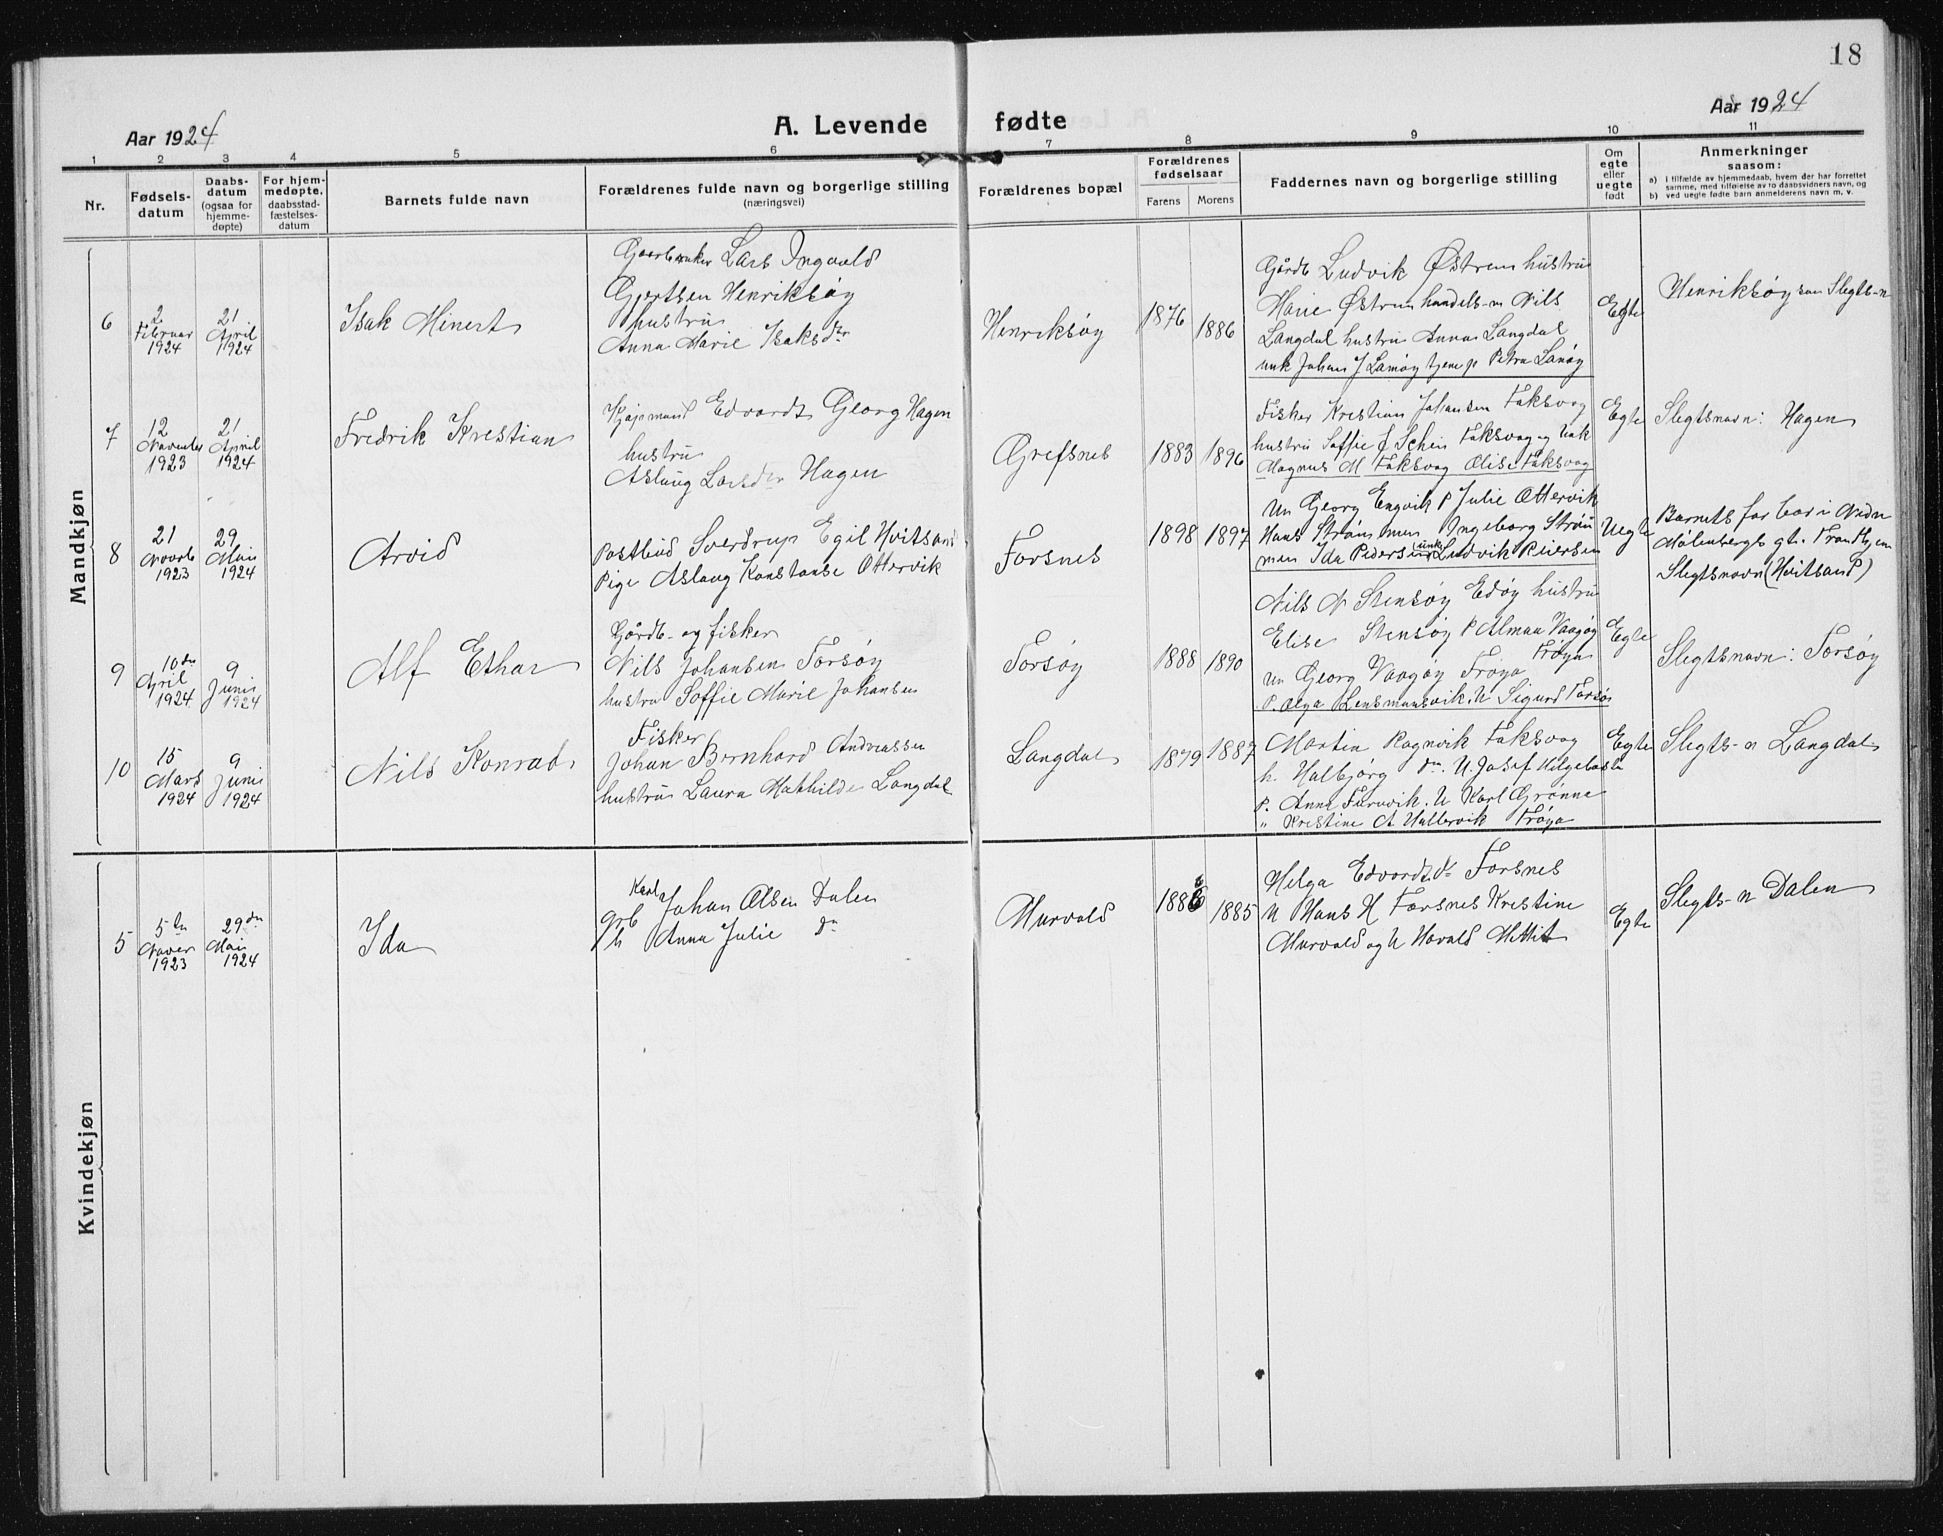 18
Aar 1924
A. Levende fødte
Aar 1924
1 2 3 4 5 6 7 8 9 10 11
Nr.
Fødsels-
datum
Daabs-
datum
(ogsaa for
hjemme-
døpte)
For hjem-
medøpte.
daabsstad-
fæstelses-
datum
Barnets fulde navn
Forældrenes fulde navn og borgerlige stilling
(næringsvei)
Forældrenes bopæl
Forældrenes
fødselsaar
Farens Morens
Faddernes navn og borgerlige stilling
Om
egte
eller
uegte
født
Anmerkninger
saasom:
a) i tilfælde av hjemmedaab, hvem der har forrettet
samme, med tilføielse av to daabsvidners navn, og
b) ved uegte fødte barn anmelderens navn m. v.
Mandkjøn
6
2
Februar
1924
21
April
1924
Isak Minert
Gaardbruker Lars Ingvald
Gjertsen Henriksøy
hustru
Anna Marie Isaksdtr
Henriksøy
1876 1886
Gårdb Ludvik Østrem hustru
Marie Østrem handels-m Nils
Langdal hustru Anna Langdal
unk Johan J Lamøy tjene p Petra Lamøy
Egte
Henriksøy som Slegts-n
7
12
November
1923
21
April
1924
Fredrik Kristian
Kjøpmand Edvardt Georg Hagen
hustru
Aslaug Larsdtr Hagen
Grefsnes
1883 1896
Fisker Kristian Johansen Faksvag
hustru Soffie Faksvag og Unk
Magnus M Faksvag Elise Faksvag
Egte
Slegtsnavn: Hagen
8
21
Novbr
1923
29
Mai
1924
Arvid
Postbud Sverdrup Egil Hvitsand
Pige Aslaug Konstanse Ottervik
Forsnes
1898 1897
Un Georg Engvik P Julie Ottervik
Hans Strømmen Ingeborg Strøm
men Ida Pedersen unk Ludvik Reiersen
Uegte
Barnets far bor i Nedre
Møllenbergs gt. Trondhjem
Slegtsnavn (Hvitsand)
9
10de
April
1924
9
Junis
1924
Alf Ethar
Gårdb- og fisker
Nils Johansen Forsøy
hustru Soffie Marie Johansen
Forsøy
1888 1890
Nils N Stensøy Edøy hustru
Elise Stensøy P Alman Vaagøy
Frøya
Un Georg Vaagøy Frøya
P. Olga Lensmansvik. U Sigurd Forsø
Egte
Slegtsnavn: Forsøy
10
15
Mars
1924
9
Junis
1924
Nils Konrad
Fisker
Johan Bernhard Andreassen
hustru Laura Mathilde Langdal
Langdal
1879 1887
Martin Ragnvik Faksvag
h. Halbjørg do. U. Josef Helgebostad
P. Anna Furuvik. U Karl Grønna
" Kristine A Hallervik Frøya
Egte
Slegts-n Langdal
Kvindekjøn
5
5te
Novbr
1923
29de
Mai
1924
Ida
Karl
grb Johan Olsen Dalen
h Anna Julie do
Murvold
1886 1885
Helga Edvardtdtr Forsnes
U Hans H Forsnes Kristine
Murvold og U Harald Mittet
Egte
Slegts-n Dalen